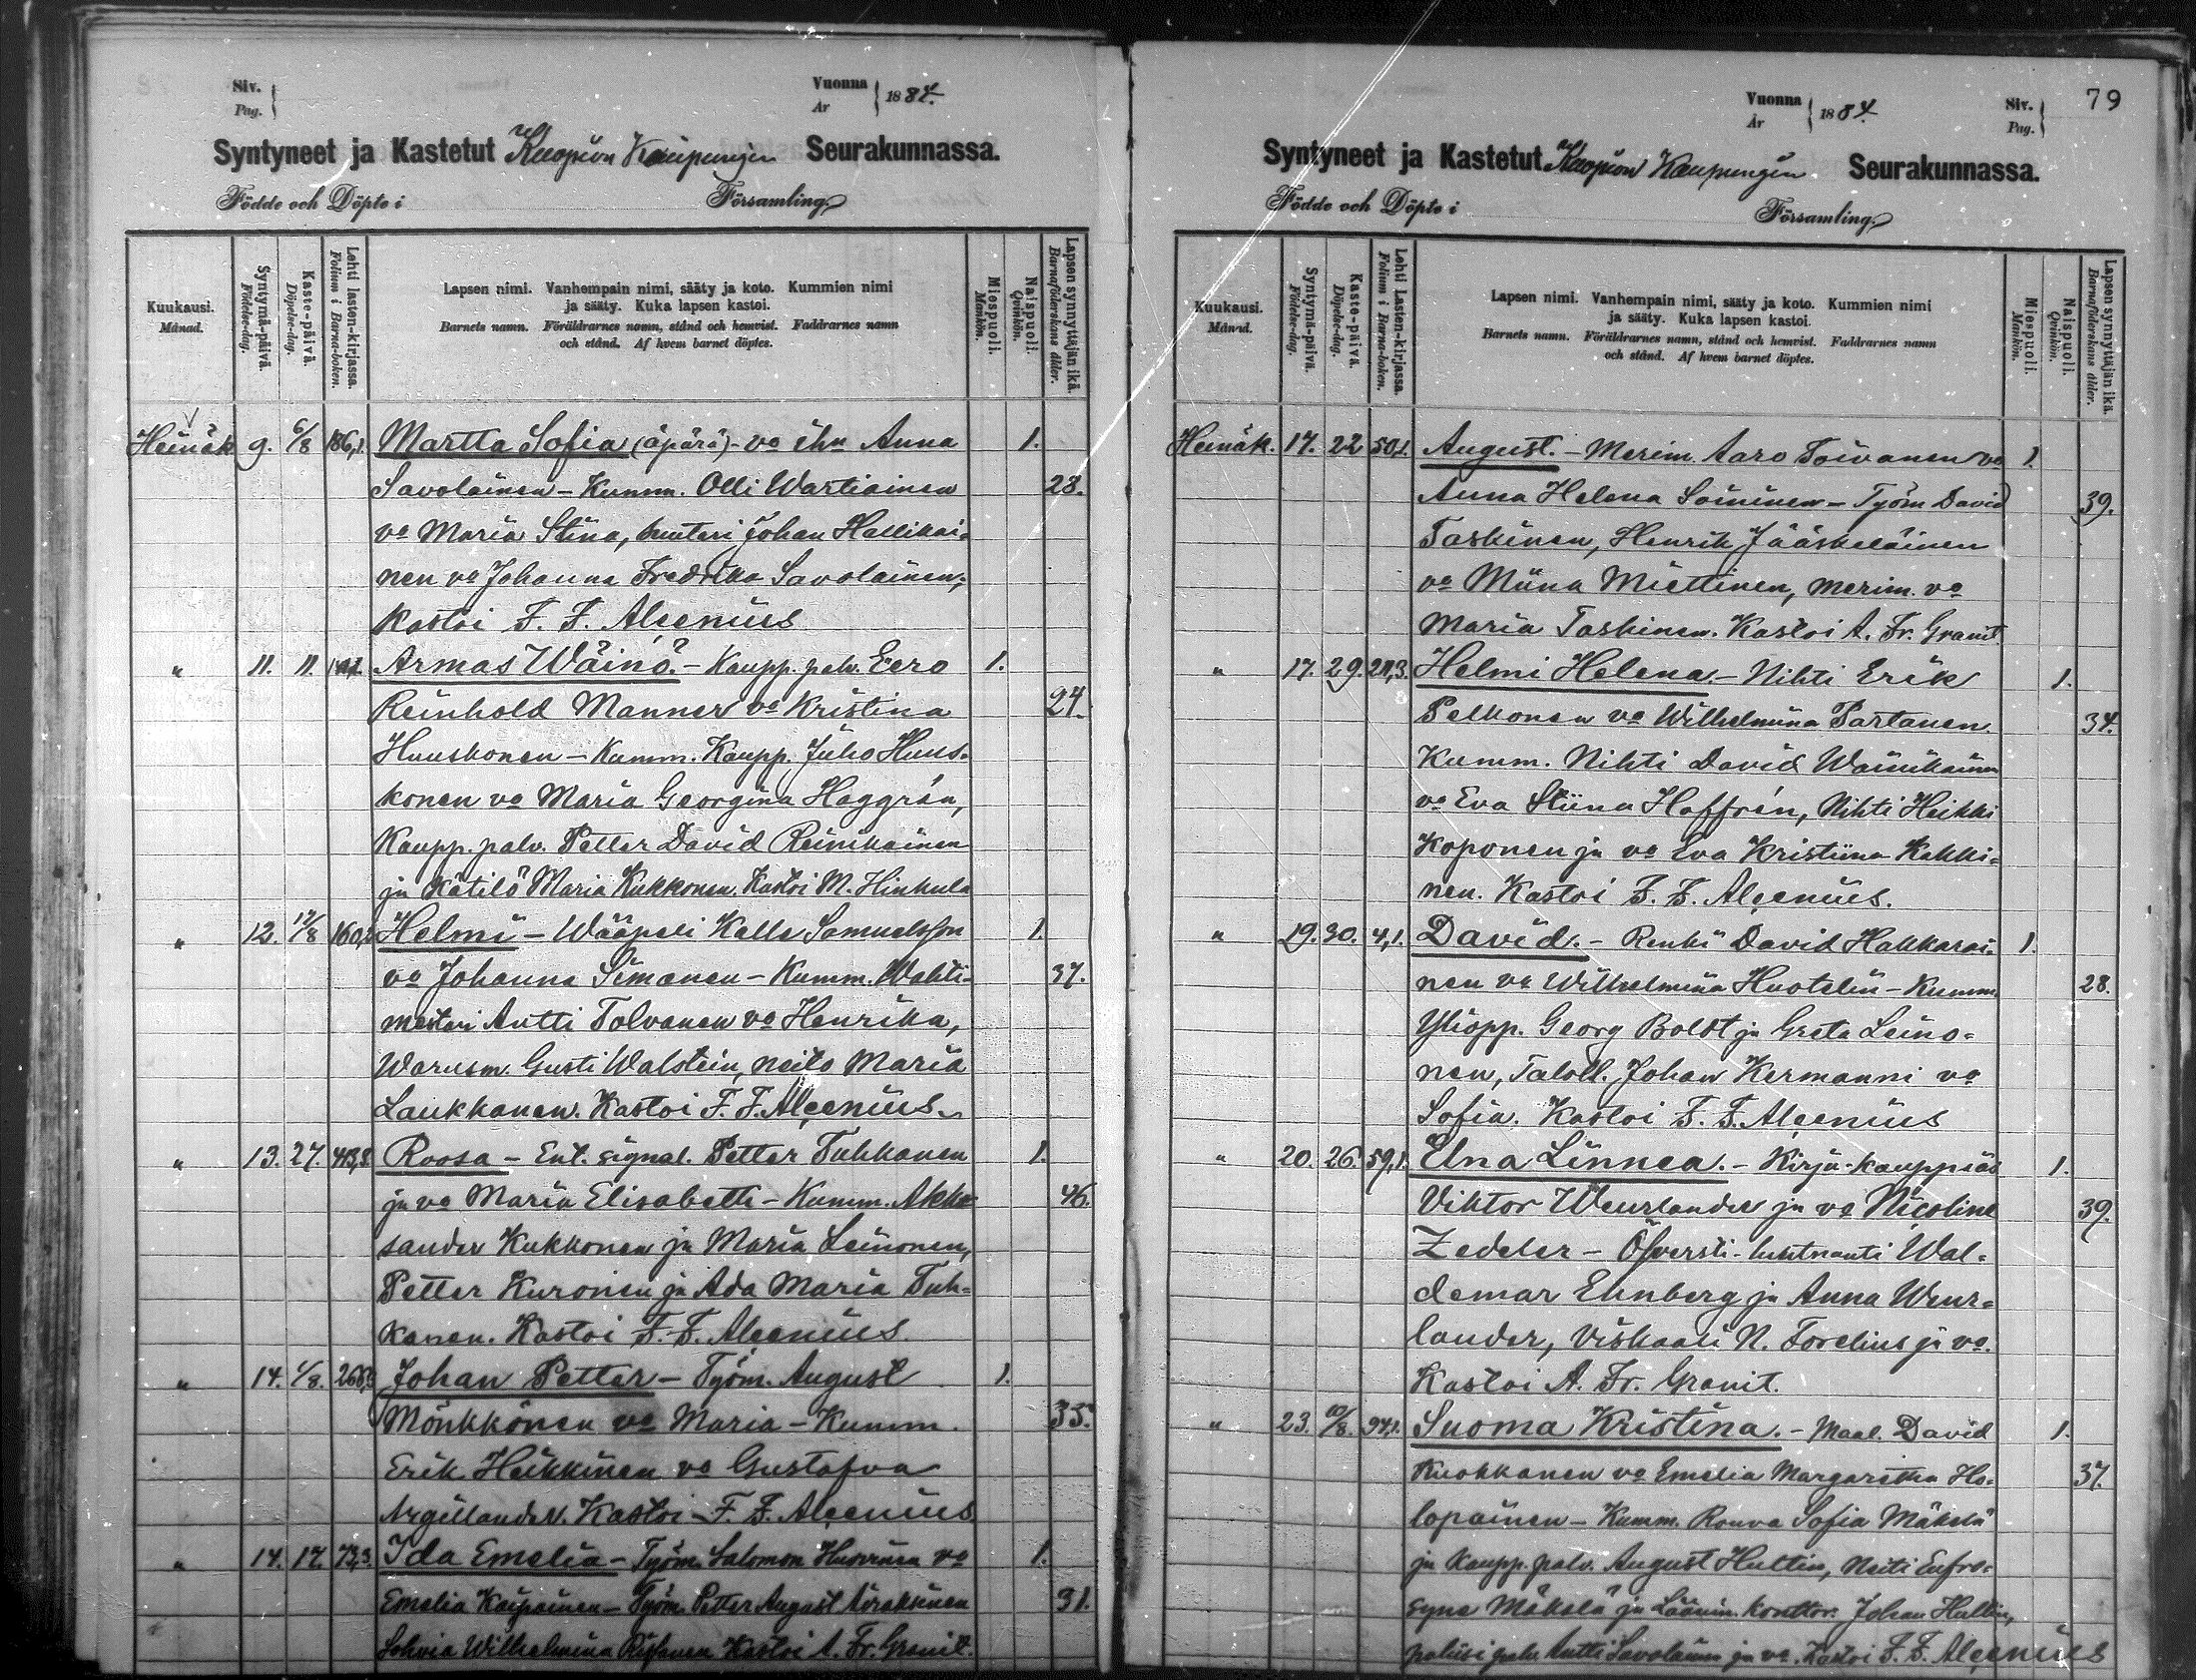 Siv.
Pag.
Vuonna
År
1884.
Syntyneet ja Kastetut Kuopion Kaupungin Seurakunnassa.
Födde och Döpte i Församling.
Kuukausi.
Månad.
Syntymä-päivä.
Födelse-dag.
Kaste-päivä.
Döpelse-dag.
Lehti lasten-kirjassa.
Folium i Barna-boken.
Lapsen nimi. Vanhempain nimi, sääty ja koto. Kummien nimi
ja sääty. Kuka lapsen kastoi.
Barnets namn. Föräldrarnes namn, stånd och hemvist. Faddrarnes namn
och stånd. Af hvem barnet döptes.
Miespuoli.
Mankön.
Naispuoli.
Qvinkön.
Lapsen synnyttäjän ikä.
Barnaföderskans ålder.
Heinäk 9. 6/8 186,1. Martta Sofia (äpärä) - va ihn Anna 1.
Savolainen - Kumm. Olli Wartiainen 28.
va Maria Stina, Johan Hallikai-
nen va Johanna Fredrika Savolainen;
Kastoi F. F. Alcenius
" 11. 11. Armas Wäinö. - Kaupp. palv. Eero 1.
Reinhold Manner va Kristina 24.
Huuskonen - Kumm. Kaupp. Juho Huus-
konen va Maria Georgina Haggrén,
Kaupp. palv. Petter David Reinikainen
ja Kätilö Maria Kukkonen. Kastoi M. Hinkula
" 12. 17/8 160, Helmi - Wääpeli Kalle Samuelsson 1.
va Johanna Simanen - Kumm. Wahti- 37.
mestari Antti Tolvanen va Henrika,
Warusm. Gusti Walstein, neito Maria
Laukkanen. Kastoi F. F. Alcenius.
" 13. 27. 413,3. Roosa - Ent. signal. Petter Tuhkanen 1.
ja va Maria Elisabeth - Kumm. Alek- 46.
sander Kukkonen ja Maria Leinonen,
Petter Kuronen ja Ada Maria Tuh-
kanen. Kastoi F. F. Alcenius.
" 14. 268,3 Johan Petter - Työm. August 1.
Mönkkönen va Maria - Kumm. 35.
Erik Heikkinen va Gustafva
Argillander. Kastoi - F. F. Alcenius
" 14. 17. 73,3. Ida Emelia - Työm. Salomon va 1.
Emelia - Työm. Petter August Airaksinen 31.
Wilhelmina Kastoi A. Fr. Granit.
Vuonna
År
1884.
Siv.
Pag.
79
Syntyneet ja Kastetut Kuopion Kaupungin Seurakunnassa.
Födde och Döpte i Församling.
Kuukausi.
Månad.
Syntymä-päivä.
Födelse-dag.
Kaste-päivä.
Döpelse-dag.
Lehti Lasten-kirjassa.
Folium i Barna-boken.
Lapsen nimi. Vanhempain nimi, sääty ja koto. Kummien nimi
ja sääty. Kuka lapsen kastoi.
Barnets namn. Föräldrarnes namn, stånd och hemvist. Faddrarnes namn
och stånd. Af hvem barnet döptes.
Miespuoli.
Mankön.
Naispuoli.
Qvinkön.
Lapsen synnyttäjän ikä.
Barnaföderskans ålder.
Heinäk. 17. 22 50,1. August. - Merim. Aaro Toivanen va 1.
Anna Helena Soininen - Työm David 39.
Taskinen, Henrik Jääskeläinen
va Miina Miettinen, merim. va
Maria Taskinen. Kastoi A. Fr. Granit
" 17. 29. 211,3. Helmi Helena. - Nihti Erik 1.
Pelkonen va Wilhelmina Partanen. 34.
Kumm. Nihti David Wäinikäinen
va Eva Stiina Hoffrén, Nihti Heikki
Koponen ja va Eva Kristiina Kokki-
nen. Kastoi F. F. Alcenius.
" 19. 30. 4,1. David. - Renki David Hakkarai- 1.
nen va Wilhelmina Huotelin - Kumm. 28.
Yliopp. Georg Boldt ja Greta Leino-
nen, Taloll. Johan Kermanni va
Sofia. Kastoi F. F. Alcenius
" 20. 26. 59,1. Elna Linnea. - Kirja-kauppias 1.
Viktor Weurlander ja va Nicoline 39.
Zedeler - Öfversti-luutnanti Wal-
demar Ehnberg ja Anna Weur-
lander, Viskaali N. Forelius ja va.
Kastoi A. Fr. Granit.
" 23. 10/8. 94,1. Suoma Kristina. - Maal. David 1.
Kuokkanen va Emelia Margaretha Ho- 37.
lopainen - Kumm. Rouva Sofia Mäkelä
ja Kaupp. palv. August Hultin, Neiti Eufro-
syne Mäkelä ja Läänin konttor. Johan Hultin,
poliisi palv Antti Savolainen ja va. Kastoi F. F. Alcenius